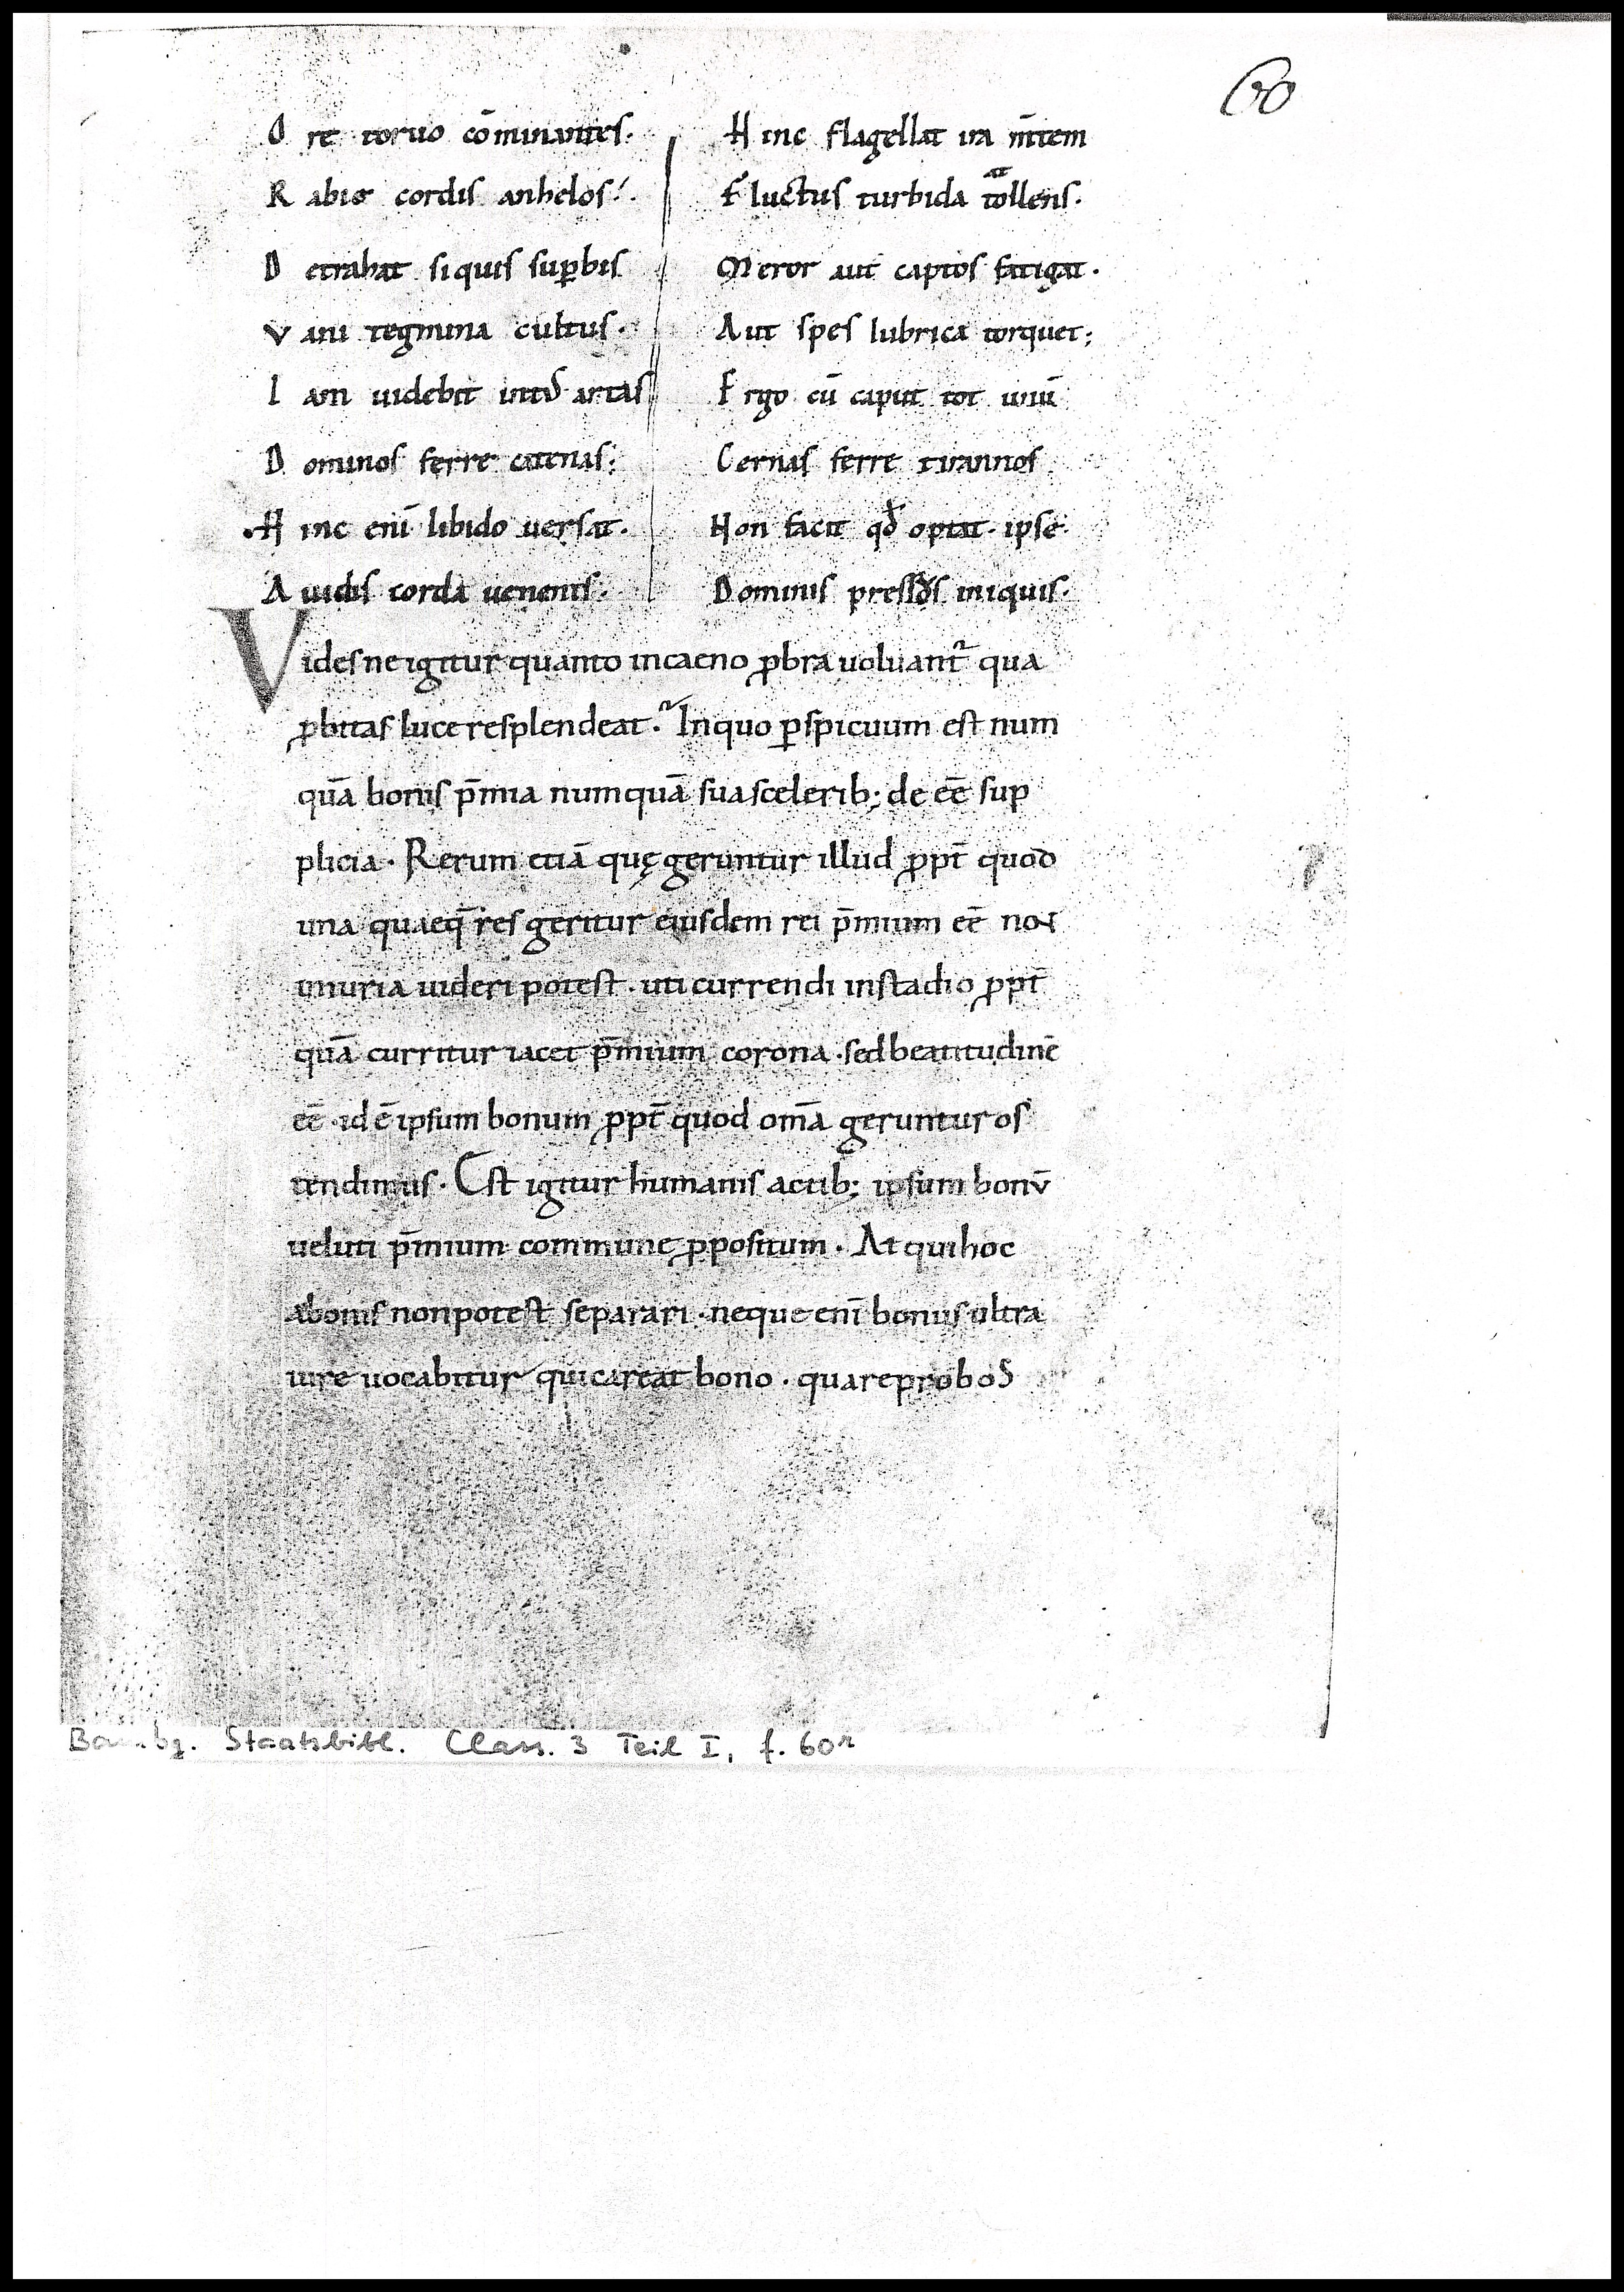 60
O re toruo cōminantes·
R abie cordis anhelos·
D etrahat siquis suꝑbis
V ani tegmina cultus·
I am uidebit intus artas
D ominos ferre catenas;
H inc eni̅ libido uersat·
A uidis corda uenenis·
H inc flagellat ira m̅tem
F luctus turbida tollens·
M eror aut captos fatigat·
A ut spes lubrica torquet;
E rgo cū caput tot unū
C ernas ferre tirannos
N on facit qd̛ optat· ipse·
D ominis pressus iniquis·
Videsne igitur quanto incaeno ꝓbra uoluantᷣ qua
ꝓbitas luce resplendeat· Inquo ꝑspicuum est num
quā bonis p̄mia numquā suascelerib; de eē sup
plicia· Rerum etiā quę geruntur illud ꝓpt̄ quod
una quaeq̄ res geritur eiusdem rei p̄mium eē non
iniuria uideri potest· uti currendi instadio ꝓpt̄
quā curritur iacet p̄mium corona· sed beatitudinē
eē· id ē ipsum bonum ꝓpt̄ quod om̄a geruntur os
tendimus· Est igitur humanis actib; ipsum bonū
ueluti p̄mium commune ꝓpositum· At qui hoc
abonis nonpotest separari· neque eni̅ bonus ultra
iure uocabitur qui careat bono· quare probos
Staatsbibl. Class. 3 Teil I, f. 60r